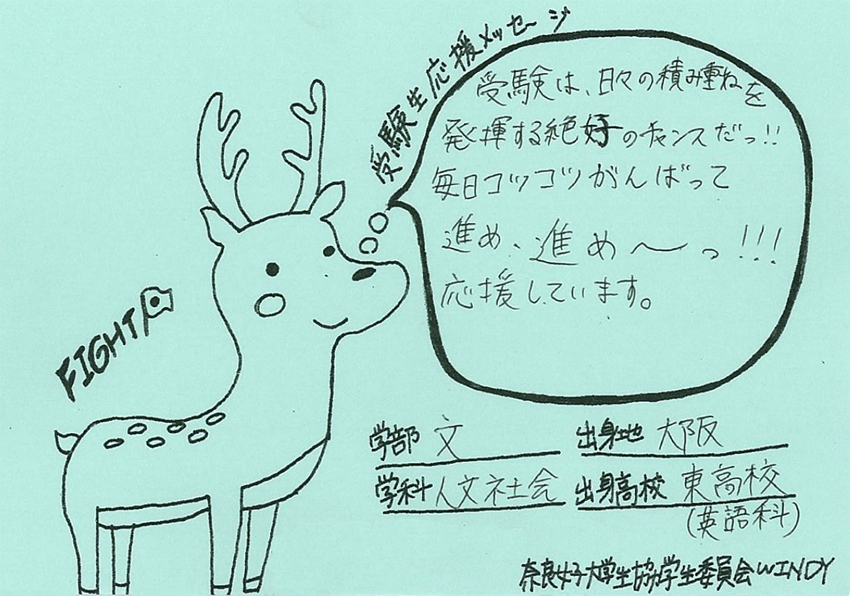 受験生応援メッセージ
受験は、日々の積み重ねを
発揮する絶好のチャンスだっ!!
毎日コツコツがんばって
進め、進め〜っ!!!
応援しています。
FIGHT
学部 文
出身地 大阪
学科 人文社会
出身高校 東高校
(英語科)
奈良女子大学生協学生委員会WINDY